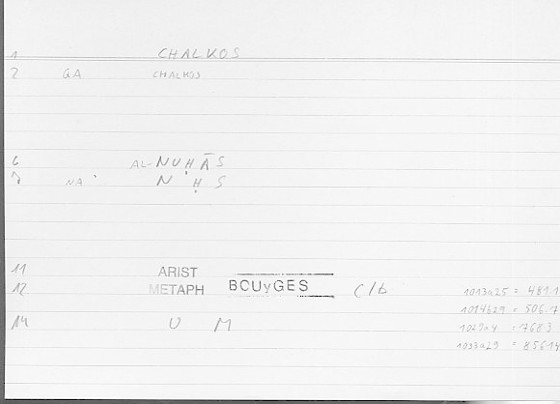 1 CHALKOS
2 GA CHALKOS
6 AL-NUḤĀS
7 NA N Ḥ S
11 ARIST
12 METAPH BOUyGES C/b
14 U M
1013a25 = 481.1
1014b29 = 506.17
= 768.3
= 856.14